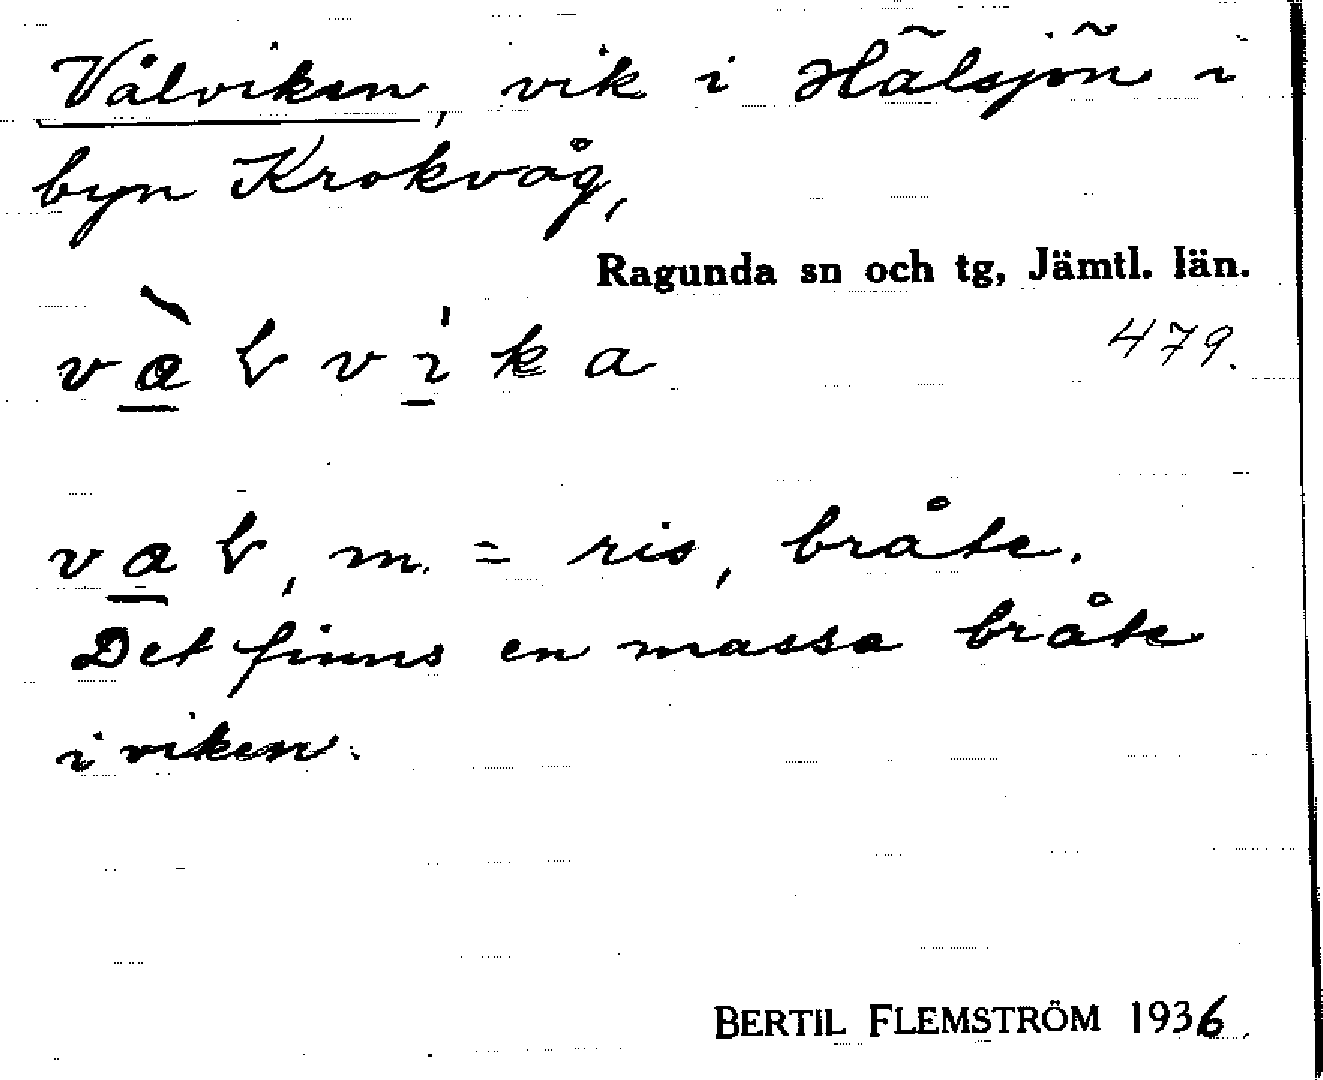 Vålviken, vik i Hälsjön i
byn Krokvåg,
Ragunda sn och tg, Jämtl. län.
479.
va̠, m. = ris, bråte.
Det finns en massa bråte
i viken.
BERTIL FLEMSTRÖM 1936.